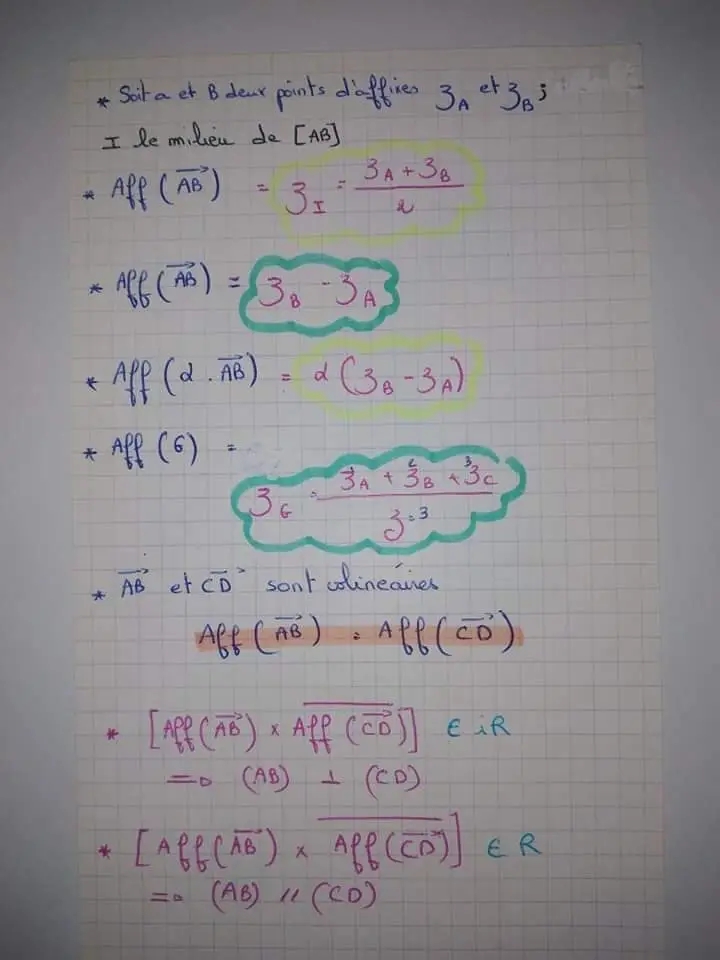 * Soit a et B deux points d'affixes 3A et 3B ;
I le milieu de [AB]
* Aff (AB) = 3I = 3A + 3B / 2
* Aff (AB) = 3B - 3A
* Aff (α . AB) = α (3B - 3A)
* Aff (G) =
3G = 3A + 3B + 3C / 3 = 3
* AB et CD sont colinéaires
Aff (AB) = Aff (CD)
* [Aff (AB) × Aff (CD)] ∈ iR
=> (AB) ⊥ (CD)
* [Aff (AB) × Aff (CD)] ∈ R
=> (AB) // (CD)